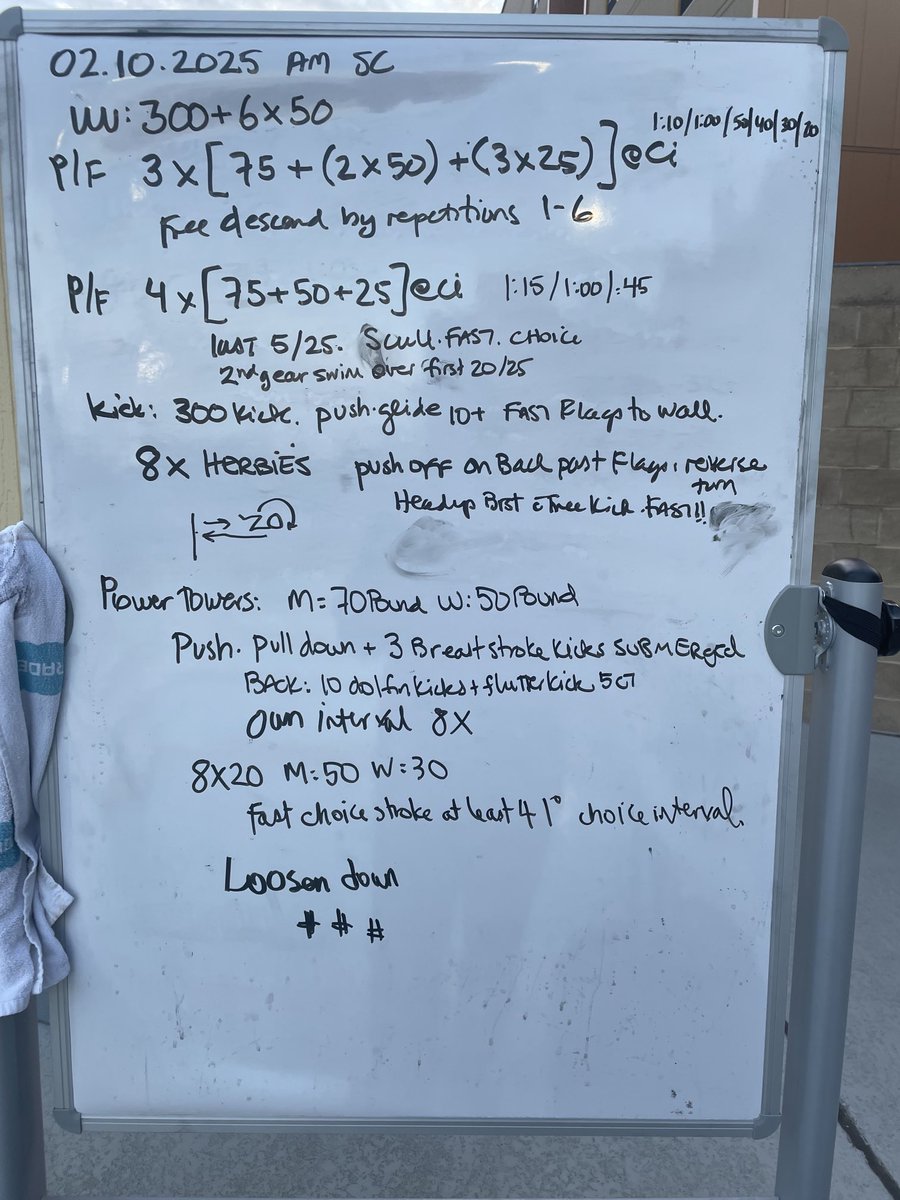 02.10.2025 AM SC
WU: 300+6x50
1:10/1:00/50/40/30/20
P/F 3x[75+(2x50)+(3x25)]@Ci
Free descend by repetitions 1-6
P/F 4x[75+50+25]@ci 1:15/1:00/:45
last 5/25. Scull.FAST. CHOICE
2nd gear swim over first 20/25
Kick: 300 kick. push-glide 10+ FAST Flags to wall.
8x HERBIES push off on Back past Flags, reverse
turn
Headup Brst Free Kick .FAST!!
20
Power Towers: M=70Pound W:50Pound
Push. Pull down + 3 Breaststroke Kicks SUBMERged
BACK: 10 dolfin kicks + flutterkick 5
own interval 8X
8X20 M:50 W=30
Fast choice stroke at least 4 1° choice interval.
Loosen down
# # #